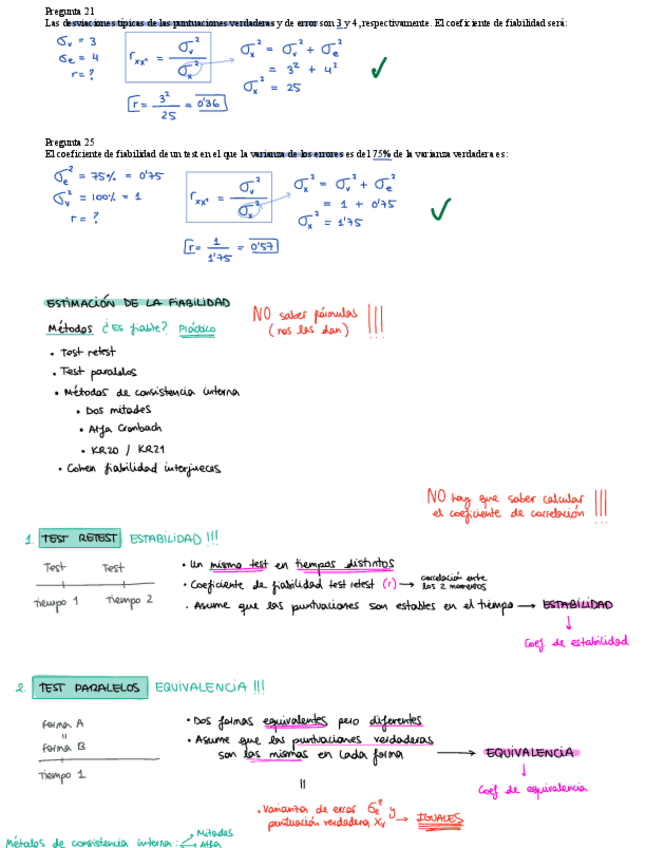 Pregunta 21
Las desviaciones típicas de las puntuaciones verdaderas y de error son 3 y 4, respectivamente. El coeficiente de fiabilidad será:
σv = 3
σe = 4
r = ?
rxx' = σv² / σx²
σx² = σv² + σe²
= 3² + 4²
σx² = 25
r = 3² / 25 = 0'36
Pregunta 25
El coeficiente de fiabilidad de un test en el que la varianza de los errores es del 75% de la varianza verdadera es:
σe² = 75% = 0'75
σv² = 100% = 1
r = ?
rxx' = σv² / σx²
σx² = σv² + σe²
= 1 + 0'75
σx² = 1'75
r = 1 / 1'75 = 0'57
ESTIMACIÓN DE LA FIABILIDAD
Métodos ¿Es fiable? Práctico
NO saber fórmulas !!!
(nos las dan)
• Test retest
• Test paralelos
• Métodos de consistencia interna
• Dos mitades
• Alfa Cronbach
• KR20 / KR21
• Cohen fiabilidad interjueces
NO hay que saber calcular !!!
el coeficiente de correlación
1. TEST RETEST ESTABILIDAD !!!
Test Test
Tiempo 1 Tiempo 2
• Un mismo test en tiempos distintos
• Coeficiente de fiabilidad test retest (r) → correlación entre
los 2 momentos
• Asume que las puntuaciones son estables en el tiempo → ESTABILIDAD
↓
Coef. de estabilidad
2. TEST PARALELOS EQUIVALENCIA !!!
Forma A
=
Forma B
Tiempo 1
• Dos formas equivalentes pero diferentes
• Asume que las puntuaciones verdaderas
son las mismas en cada forma → EQUIVALENCIA
↓
Coef de equivalencia
=
• Varianza de error σe² y
puntuación verdadera Xv → IGUALES
Métodos de consistencia interna: Mitades
Alfa